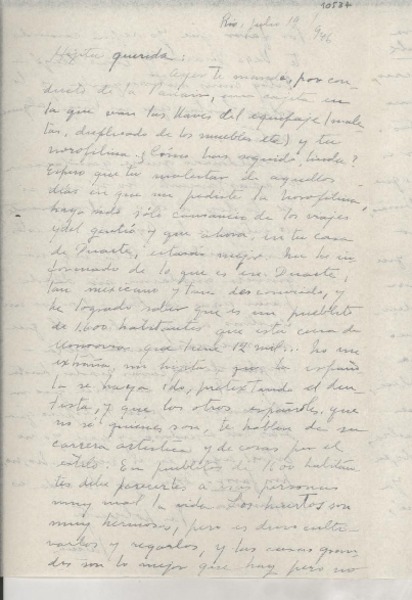 10534
Rio, julio 19 / 946
Hijita querida:
Ayer te mandé, por con-
ducto de la Panair, una cajita en
la que van las llaves del equipaje (male
tas, duplicado de los muebles etc) y tu
novofilina. ¿Cómo has seguido, linda?
Espero que tu malestar de aquellos
días en que me pediste la novofilina,
haya sido sólo cansancio de los viajes
y del gentío y que ahora, en tu casa
de Duarte, estarás mejor. Me he in
formado de lo que es ese Duarte,
tan mexicano y tan desconocido, y
he logrado saber que es un pueblito
de 1.600 habitantes que está cerca de
Monrovia que tiene 12 mil... No me
extraña, mi hijita, que la españo
la se haya ido, pretextando el den-
tista, y que los otros españoles, que
no sé quienes son, te hablen de su
carrera artística y de cosas por el
estilo. En pueblitos de 1600 habitan
tes debe parecerles a esas personas
muy mal la vida. Los huertos son
muy hermosos, pero es duro culti-
varlos y regarlos, y las casas gran
des son lo mejor que hay pero no